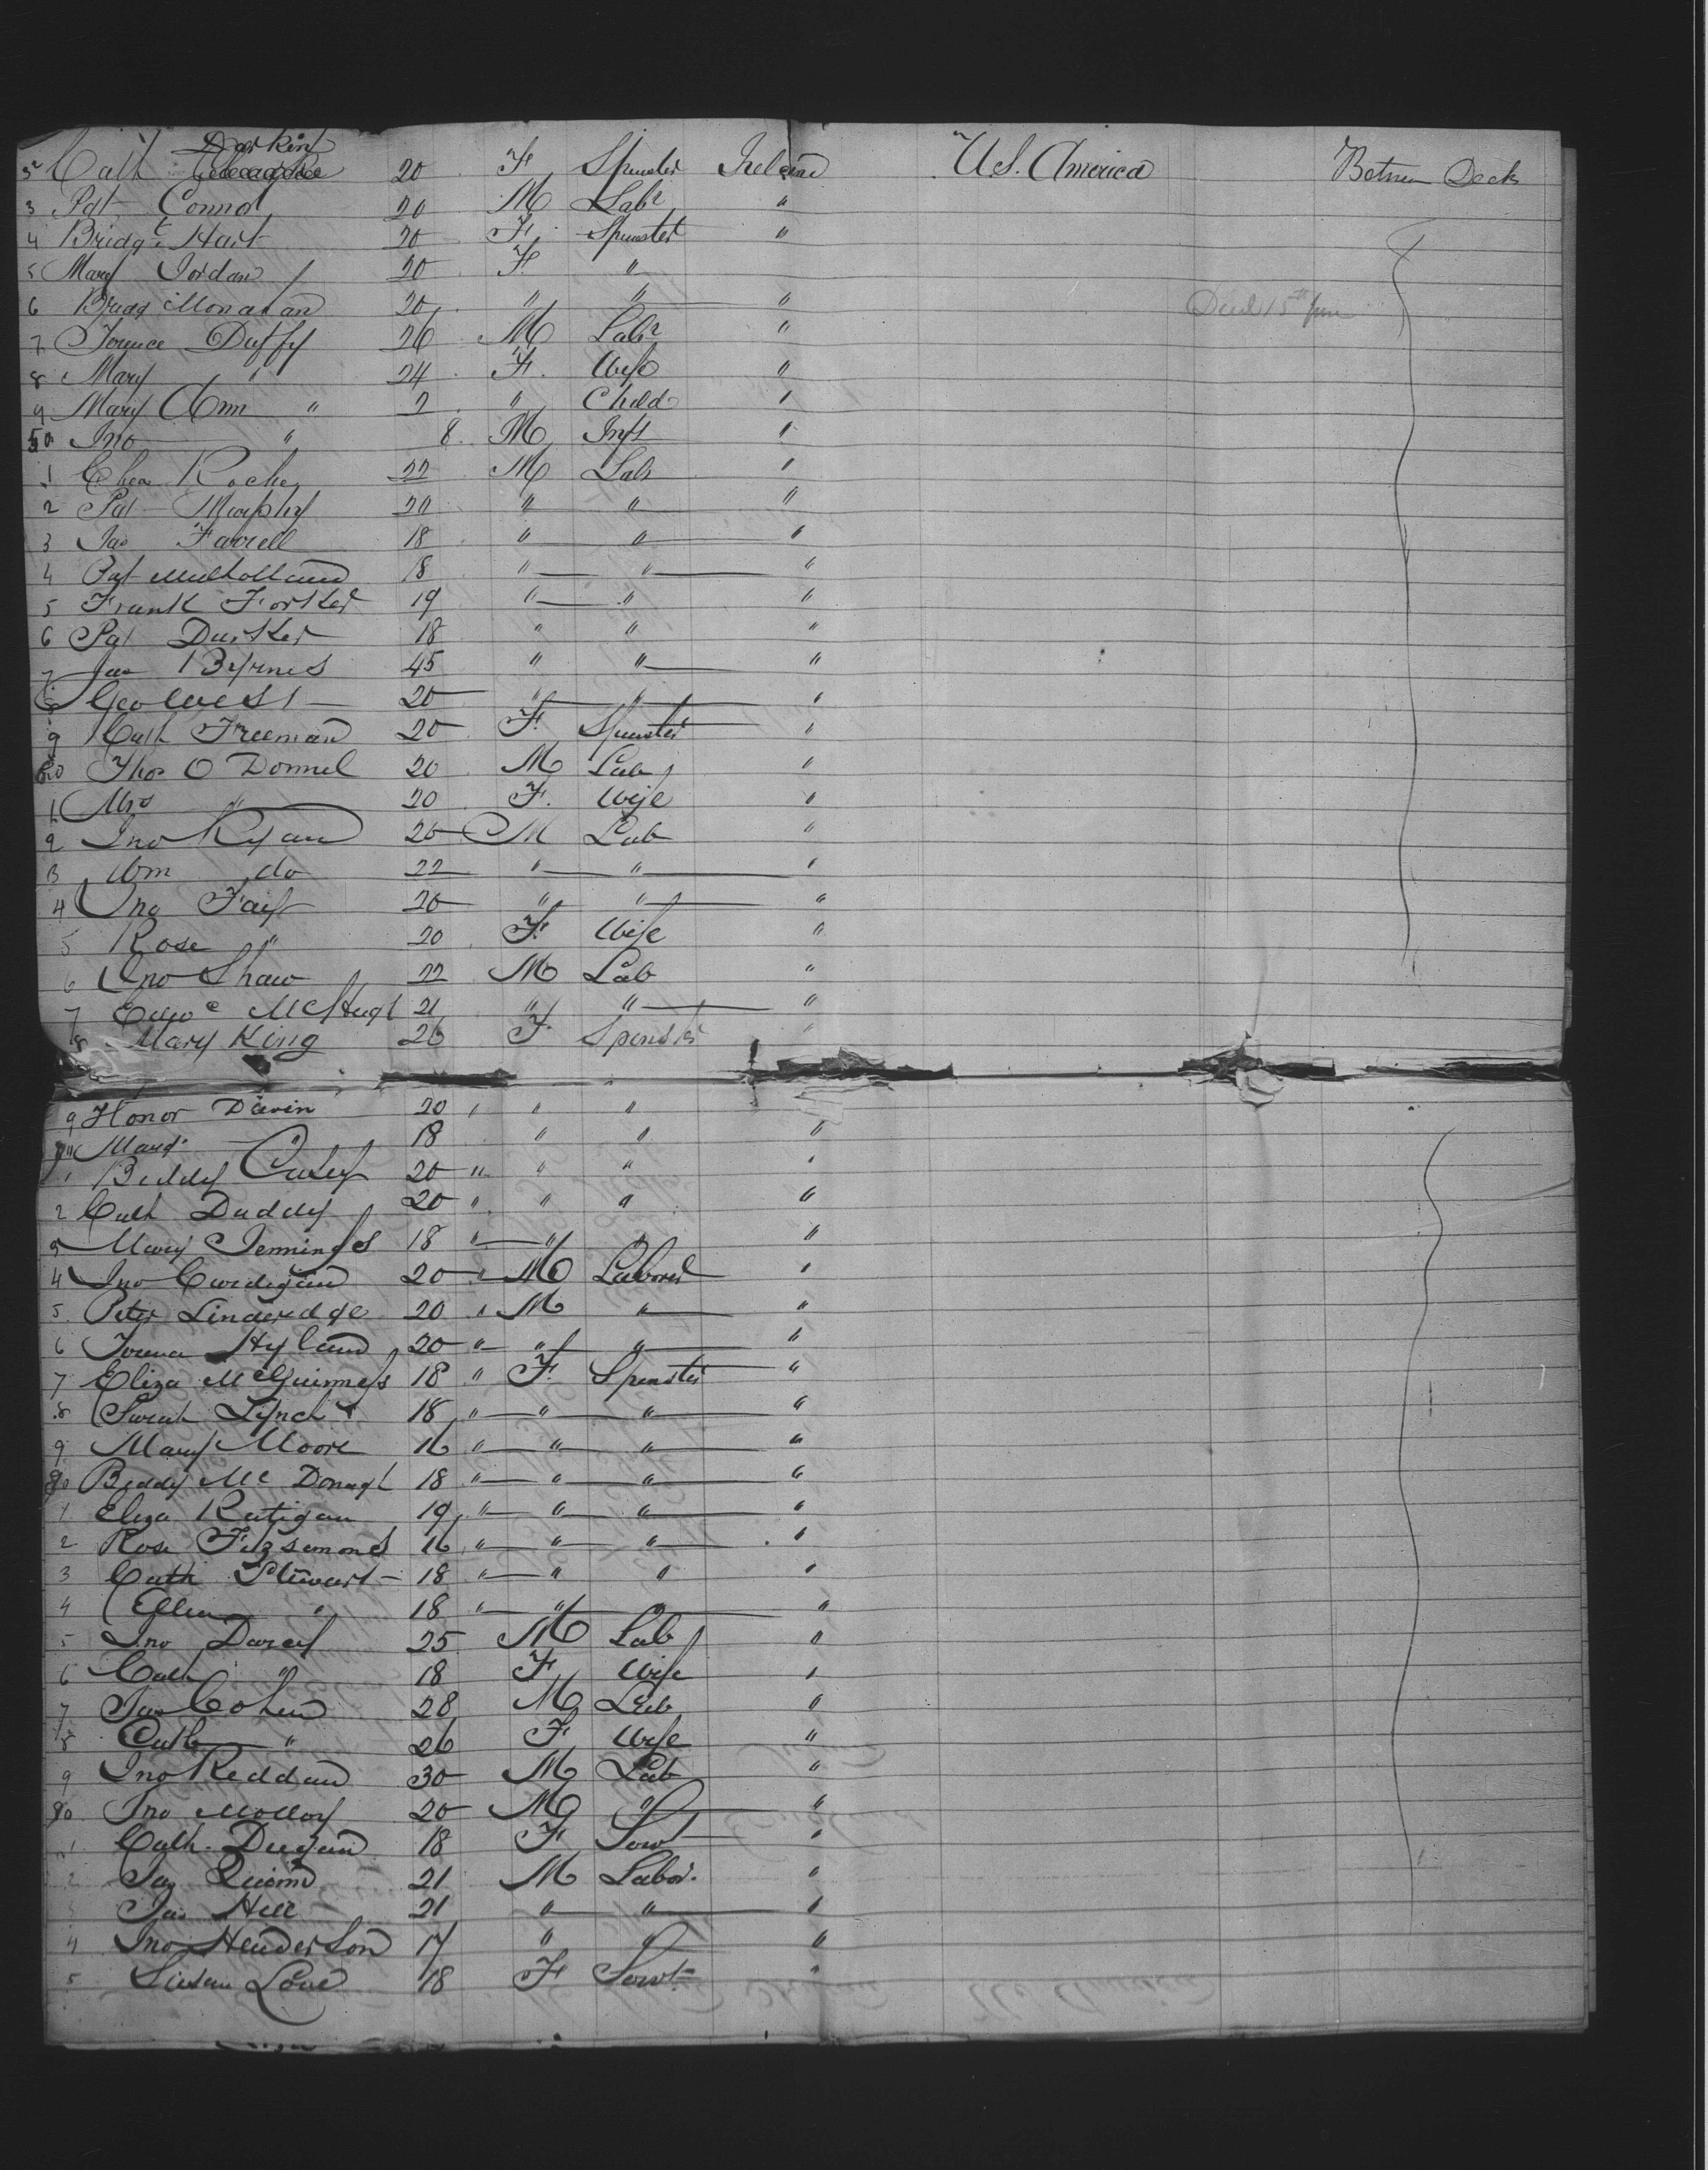 Durkin
2 Cath 20 F Spinster Ireland U.S. America Between Decks
3 Pat Connol 20 M Labr "
4 Bridgt Hart 20 F Spinster "
5 Mary Jordan 20 F "
6 Bridg Monahan 20 " " " Died 15th June
7 Terence Duffy 26 M Labr "
8 Mary " 24 F. Wife "
9 Mary Ann " 2 " Child "
50 Jno " 8 M Inft "
1 Chas Roche 22 M Labr "
2 Pat Murphy 20 " " "
3 Jas Farrell 18 " " "
4 Pat Mulholland 18 " " "
5 Frank Forster 19 " " "
6 Pat Dusker 18 " " "
7 Jas Byrnes 45 " " "
8 Geo West 20 " " "
9 Cath Freeman 20 F. Spinster "
60 Thos O Donnel 20 M Lab "
1 Mrs " 20 F. Wife "
2 Jno Ryan 26 M Lab "
3 Wm do 22 " " "
4 Jno Fair 20 " " "
5 Rose " 20 F. Wife "
6 Jno Shaw 22 M Lab "
7 McHugh 21 " " "
8 Mary King 26 F. Spinster "
9 Honor Davin 20 " " "
70 Margt " 18 " " "
1 Biddy Casey 20 " " " "
2 Cath Duddy 20 " " " "
3 Mary Jennings 18 " " " "
4 Jno 20 " M Laborer "
5 Peter Linderedge 20 " M " "
6 Hyland 20 " " " "
7 Eliza McGuinness 18 " F. Spinster "
8 Sarah Lynch 18 " " " "
9 Mary Moore 16 " " " "
80 Biddy Mc Donagh 18 " " " "
1 Eliza Ratigan 19 " " " "
2 Rose Fitzsemons 16 " " " "
3 Cath Stewart 18 " " " "
4 Ellen " 18 " " " "
5 Jno Darcy 25 M Lab "
6 Cath " 18 F Wife "
7 Jas Cohen 28 M Lab "
8 Cath " 26 F Wife "
9 Jno Reddan 30 M Lab "
90 Jno Molloy 20 M " "
1 Cath. Dugan 18 F Servt "
2 Jas Quinn 21 M Labor. "
3 Jas Hill 21 " " "
4 Jno Henderson 17 " " "
5 Susan Love 18 F Servt "